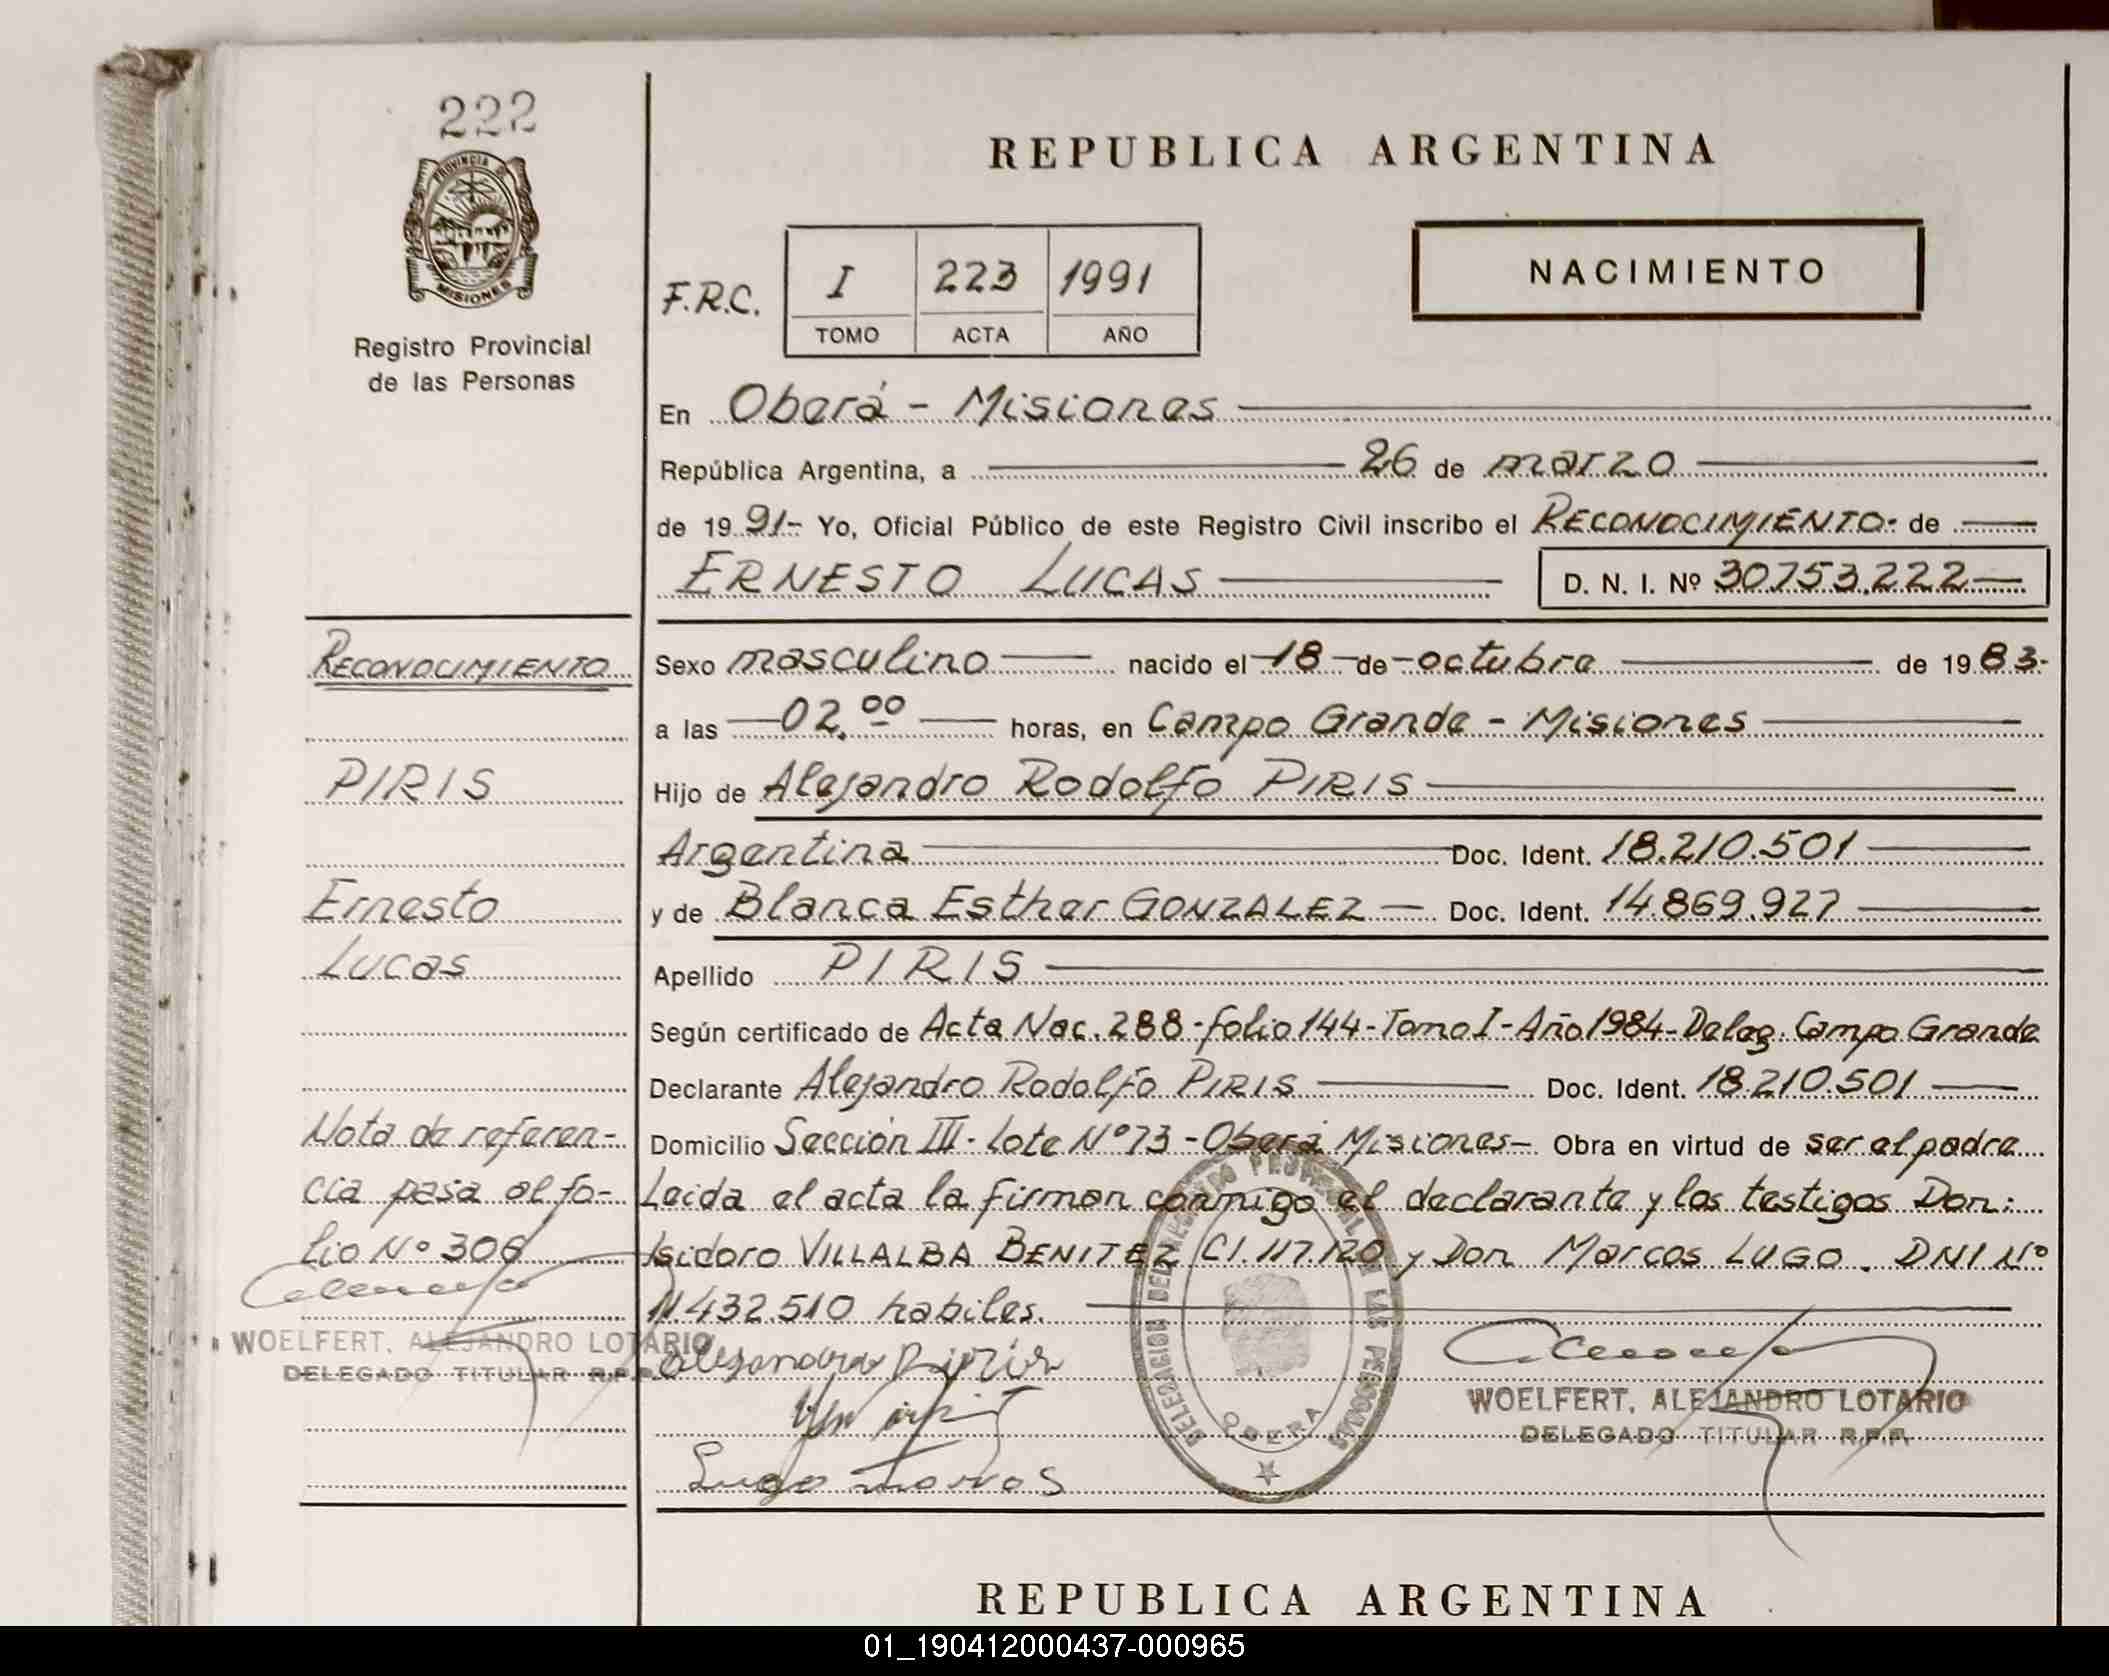 222
PROVINCIA DE
MISIONES
Registro Provincial
de las Personas
REPUBLICA ARGENTINA
NACIMIENTO
F.R.C. I 223 1991
TOMO ACTA AÑO
En Oberá - Misiones
República Argentina, a 26 de marzo
de 1991- Yo, Oficial Público de este Registro Civil inscribo el RECONOCIMIENTO- de
ERNESTO LUCAS D. N. I. Nº 30.753.222
RECONOCIMIENTO
PIRIS
Ernesto
Lucas
Nota de referen-
cia pasa al fo-
lio Nº 306
WOELFERT, ALEJANDRO LOTARIO
DELEGADO TITULAR R.P.P.
Sexo masculino nacido el 18 de octubre de 1983-
a las 02,00 horas, en Campo Grande - Misiones
Hijo de Alejandro Rodolfo PIRIS
Argentina Doc. Ident. 18.210.501
y de Blanca Esther GONZALEZ Doc. Ident. 14.869.927
Apellido PIRIS
Según certificado de Acta Nac. 288-folio 144-Tomo I-Año 1984-Deleg. Campo Grande
Declarante Alejandro Rodolfo PIRIS Doc. Ident. 18.210.501
Domicilio Sección III-lote Nº 73-Oberá Misiones- Obra en virtud de ser el padre
Leida el acta la firman conmigo el declarante y los testigos Don:
Isidoro VILLALBA BENITEZ CI.117.120 y Don Marcos LUGO. DNI Nº
11.432.510 habiles.
Lugo Marcos
DELEGACION DEL REGISTRO PROVINCIAL DE LAS PERSONAS
OBERA
WOELFERT, ALEJANDRO LOTARIO
DELEGADO TITULAR R.P.P.
REPUBLICA ARGENTINA
01_190412000437-000965